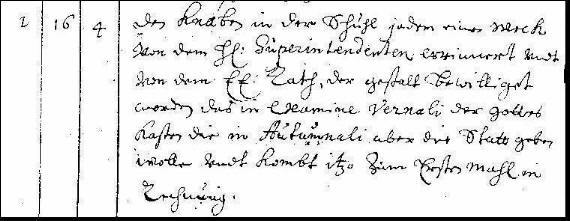 2 16 4 den Knaben in der Schuhl jedem einen weck
von dem H: Superintendenten erinnert undt
von dem EE: Rath, der gestalt bewilliget
worden das in Examine Vernali der gottes
Kasten die in Autumnali aber die Statt geben
wolle undt kombt itzo zum Ersten mahl in
Rechnung.